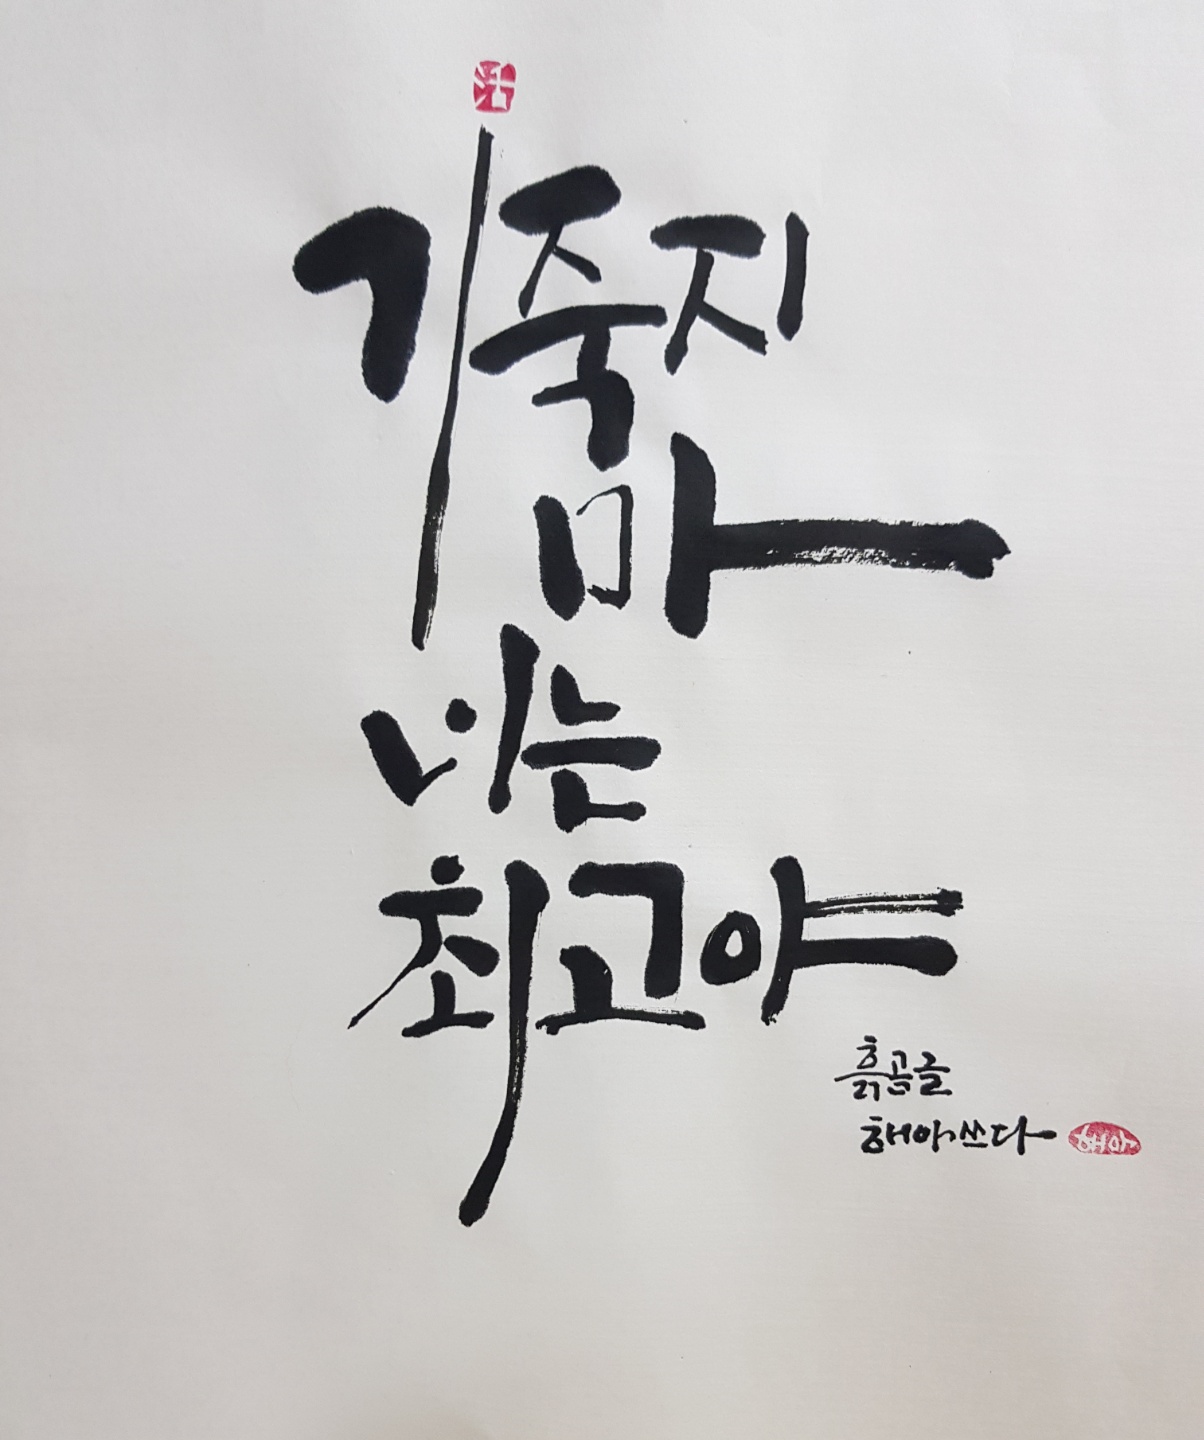 기죽지
마
나는
최고야
흙곰글
해아쓰다
해아